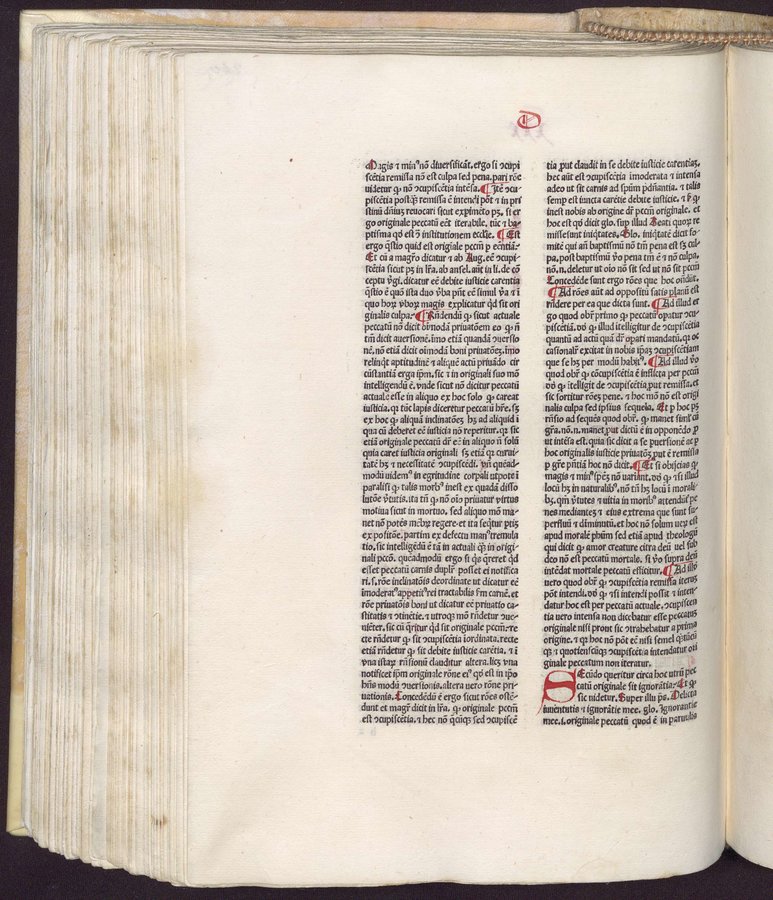 D
Magis et minꝰ nō diversificāt. ergo si ɔcupi
scētia remissa nō est culpa sed pena. pari rōe
videtur ꝙ nō ɔcupiscētia intēsa. ¶ Itē ɔcu
piscētia postqͣ remissa ē intendi pōt ⁊ in pri
stinū dn̄iuꝫ revocari sicut expimēto pꝫ. si er
go originale peccatū eēt iterabile. tūc ⁊ ba
ptisma qd̓ est ꝯͣ institutionem eccl̓ie. ¶ Est
ergo q̄stio quid est originale pccm̄ ꝑ eēntiā.
Et cū a magr̄o dicatur ⁊ ab Aug. eē ɔcupi-
scētia sicut pꝫ in lr̄a. ab ansel. aut̄ in li. de cō
ceptu vgi. dicatur eē debite iusticie carentia
q̄stio ē quō ista duo v̓ba pn̄t eē simul v̓a ⁊ ī
quo hoꝝ v̓boꝝ magis explicatur qd̓ sit ori
ginalis culpa. ¶ Rn̄dendū ꝙ sicut actuale
peccatū nō dicit oīmodā privatōem eo ꝙ nō
tm̄ dicit aversionē. īmo etiā quandā ɔversio
nē. nō etiā dicit oīmodā boni privatōeꝫ. īmo
relinqt aptitudinē ⁊ aliquē actū privādo cir
cūstantiā erga ip̄m. sic ⁊ in originali suo mō
intelligendū ē. vnde sicut nō dicitur peccatū
actuale esse in aliquo ex hoc solo ꝙ careat
iusticia. qꝛ tūc lapis diceretur peccatū hr̄e. sꝫ
ex hoc ꝙ aliquā inclinatōeꝫ hꝫ ad aliquid ī
qua cū deberet eē iusticia nō reperitur. qꝛ sic
etiā originale peccatū dr̄ eē in aliquo n̄ solū
quia caret iusticia originali sꝫ etiā qꝛ curui-
tatē hꝫ ⁊ necessitatē ɔcupiscēdi. vn̄ quēad-
modū videmꝰ in egritudine corpali vtpote ī
paralisi ꝙ talis morbꝰ inest ex quadā disso
lutōe v̓tutis. ita tn̄ ꝙ nō oīo privatur virtus
motiua sicut in mortuo. sed aliquo mō ma-
net nō potēs mēbꝝ regere. et ita seqtur ptiꝫ
ex positōe. partim ex defectu manꝰ tremula
tio. sic intelligēdū ē tā in actuali qͣꝫ in origi-
nali pccō. quēadmodū ergo si qͥs q̄reret qd̓
esset peccatū carnis duplr̄ posset ei notifica
ri. s. rōe inclinatōis deordinate vt dicatur eē
īmoderatꝰ appetitꝰ rei tractabilis ẜm carnē. et
rōe privatōis boni vt dicatur eē privatio ca-
stitatis ⁊ ɔtinētie. ⁊ vtroqꝫ mō rn̄detur ɔve-
niēter. sic cū q̄ritur qd̓ sit originale pccm̄. re
cte rn̄detur ꝙ sit ɔcupiscētia īordinata. recte
etiā rn̄detur ꝙ sit debite iusticie carētia. ⁊ ī
vna istaꝝ rn̄sionū clauditur altera. licꝫ vna
notificet ip̄m originale rōne eiꝰ qd̓ est in ip̄o
hn̄s modū ɔversionis. altera vero rōne pri-
vationis. Concedēdū ē ergo sicut rōes ostē-
dunt et magr̄ dicit in lr̄a. ꝙ originale pccm̄
est ɔcupiscētia. ⁊ hec nō qͥcūqꝫ sed ɔcupiscē
tia put claudit in se debite iusticie carentiaꝫ.
hec aūt est ɔcupiscētia īmoderata ⁊ intensa
adeo vt sit carnis ad sp̄m pdn̄antia. ⁊ talis
semp est iuncta carētie debite iusticie. ⁊ v̓ ꝙ
inest nobis ab origine dr̄ pctm̄ originale. et
hoc est qd̓ dicit glo. sup illud Beati quoꝝ re
misse sunt iniqͥtates. Glo. iniqͥtatē dicit fo-
mitē qui an̄ baptismū nō tm̄ pena est sꝫ cul-
pa. post baptismū v̓o pena tm̄ ē ⁊ nō culpa.
nō. n. deletur vt oīo nō sit sed vt nō sit pccm̄
Concedēde sunt ergo rōes que hoc ondūt.
¶ Ad rōes aūt ad oppositū satis planū est
rn̄dere per ea que dicta sunt. ¶ Ad illud er
go quod obr̄ primo ꝙ peccatū opatur ɔcu-
piscētiā. vō ꝙ illud itelligitur de ɔcupiscētia
quantū ad actū quā dr̄ opati mandatū. qꝛ oc
casionalr̄ excitat in nobis ip̄aꝫ ɔcupiscētiam
que se hꝫ per modū habitꝰ. ¶ Ad illud v̓o
quod obr̄ ꝙ cōcupiscētia ē inflicta per pccm̄
vō ꝙ itelligit de ɔcupiscētia put remissa. et
sic sortitur rōeꝫ pene. ⁊ hoc mō nō est origi
nalis culpa sed ipsius sequela. Et p hoc pꝫ
rn̄sio ad sequēs quod obr̄. ꝙ manet siml̓ cū
gr̄a. nō. n. manet put dictū ē in opponēdo ꝑ
vt intēsa est. quia sic dicit a se puersionē ac p
hoc originalis iusticie privatōꝫ put ē remissa
p gr̄e pn̄tiā hoc nō dicit. ¶ Et si obijcias ꝙ
magis ⁊ minꝰ sp̄eꝫ nō variant. vō ꝙ ⁊ si illud
locū hꝫ in naturalibꝰ. nō tn̄ hꝫ locū ī morali-
bꝫ. qm̄ v̓tutes ⁊ vitia in moribꝰ attendūt̄ pe
nes mediantes ⁊ eius extrema que sunt su-
perfluū ⁊ diminutū. et hoc nō solum veꝝ est
apud moralē ph̄um sed etiā apud theologū
qui dicit ꝙ amor creature citra deū vel sub
deo nō est peccatū mortale. si v̓o supra deū
intēdat mortale peccatū efficitur. ¶ Ad illd̓
vero quod obr̄ ꝙ ɔcupiscētia remissa iteruꝫ
pōt intendi. vō ꝙ ⁊ si intendi possit ⁊ inten-
datur hoc est per peccatū actuale. ɔcupiscen
tia vero intensa non dicebatur esse peccatuꝫ
originale nisi pront sic ɔtrahebatur a prima
origine. ⁊ qꝛ hoc nō pōt eē nisi semel qͣtūcū
qꝫ ⁊ quotienscūqꝫ ɔcupiscētia intendatur ori
ginale peccatum non iteratur.
SEcūdo queritur circa hoc vtrū pec
catū originale sit ignorātia. Et ꝙ
sic videtur. Super illu ps. Delicta
iuuentutis ⁊ ignorātie mee. glo. Ignorantie
mee. i. originale peccatū quod ē in paruulis